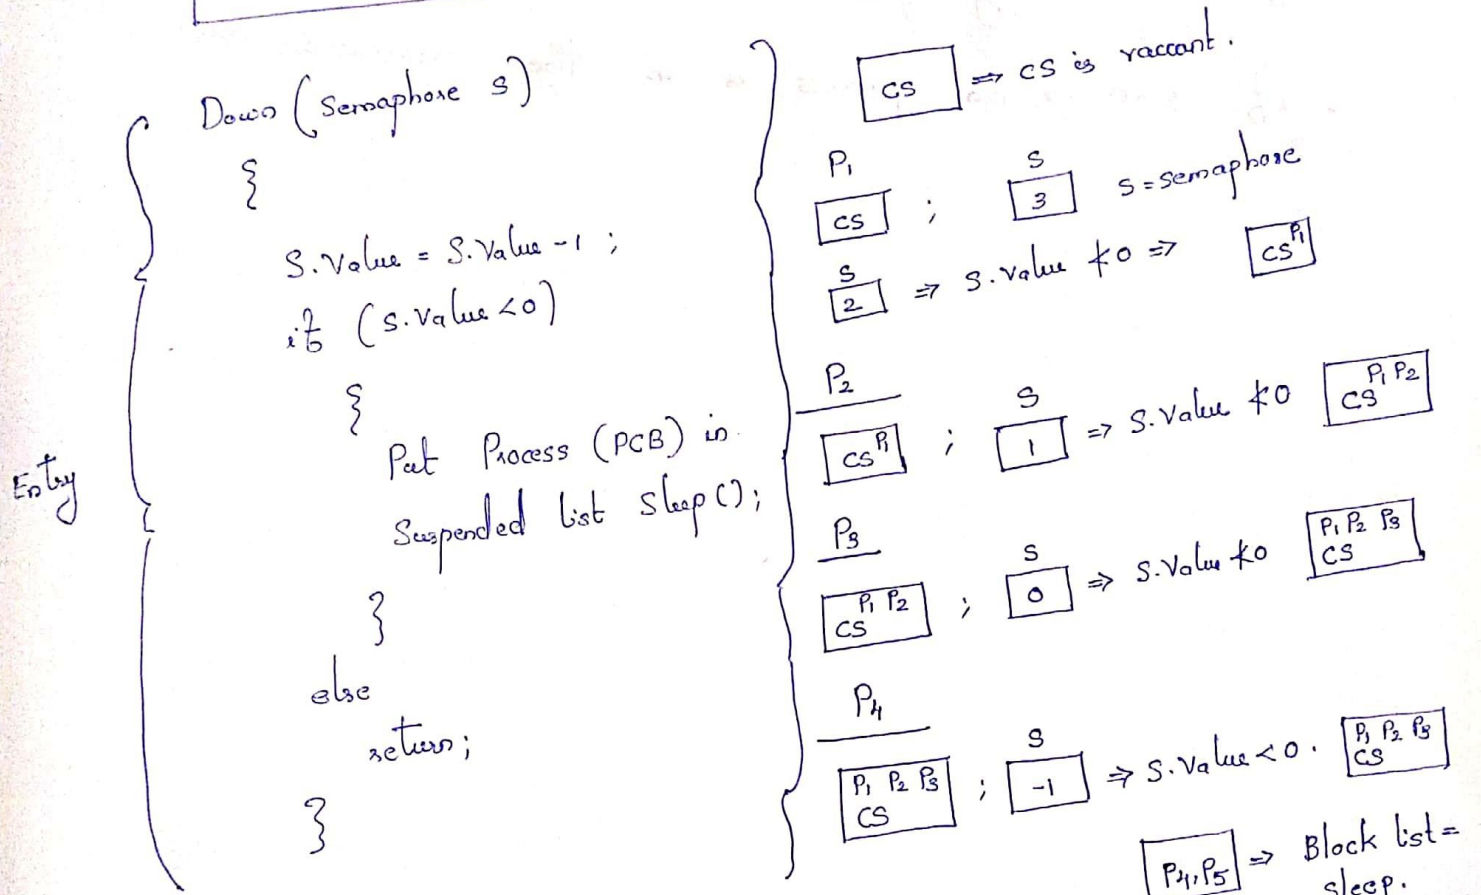 Down (Semaphore s)
{
S.Value = S.Value -1 ;
if (S.Value <0)
{
Put Process (PCB) in
Suspended list sleep();
}
else
return;
}
Entry
CS ⇒ CS is vaccant.
P1 S
CS ; 3 S = semaphore
S
2 ⇒ S.value ≮0 ⇒ CS P1
P2
CS P1 ; S 1 ⇒ S.Value ≮0 CS P1 P2
P3
CS P1 P2 ; S 0 ⇒ S.Value ≮0 P1 P2 P3 CS
P4
P1 P2 P3 CS ; S -1 ⇒ S.Value <0. P1 P2 P3 CS
P4, P5 ⇒ Block list =
sleep.